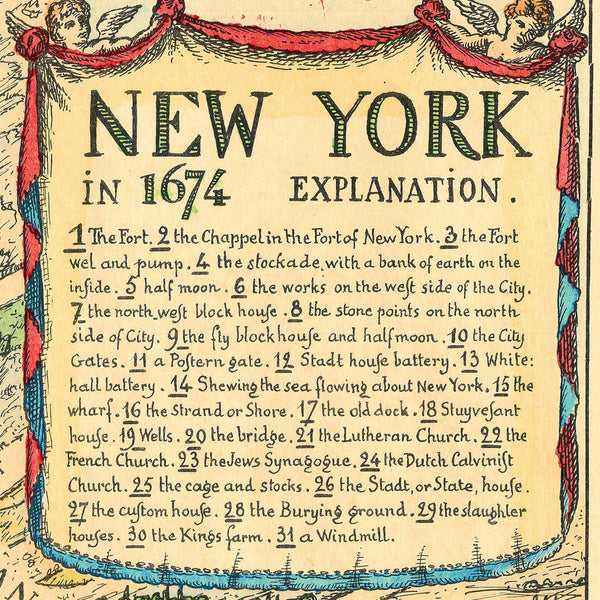 NEW YORK
in 1674 EXPLANATION.
1 The Fort. 2 the Chappel in the Fort of New York. 3 the Fort
wel and pump. 4 the stockade with a bank of earth on the
inside. 5 half moon. 6 the works on the west side of the City.
7 the north west block house. 8 the stone points on the north
side of City. 9 the fly blockhouse and half moon. 10 the City
Gates. 11 a Postern gate. 12 Stadt house battery. 13 White:
hall battery. 14 Shewing the sea flowing about New York. 15 the
wharf. 16 the Strand or Shore. 17 the old dock. 18 Stuyvesant
house. 19 Wells. 20 the bridge. 21 the Lutheran Church. 22 the
French Church. 23 the Jews Synagogue. 24 the Dutch Calvinist
Church. 25 the cage and stocks. 26 the Stadt, or State, house.
27 the custom house. 28 the Burying ground. 29 the slaughter
houses. 30 the Kings farm. 31 a Windmill.